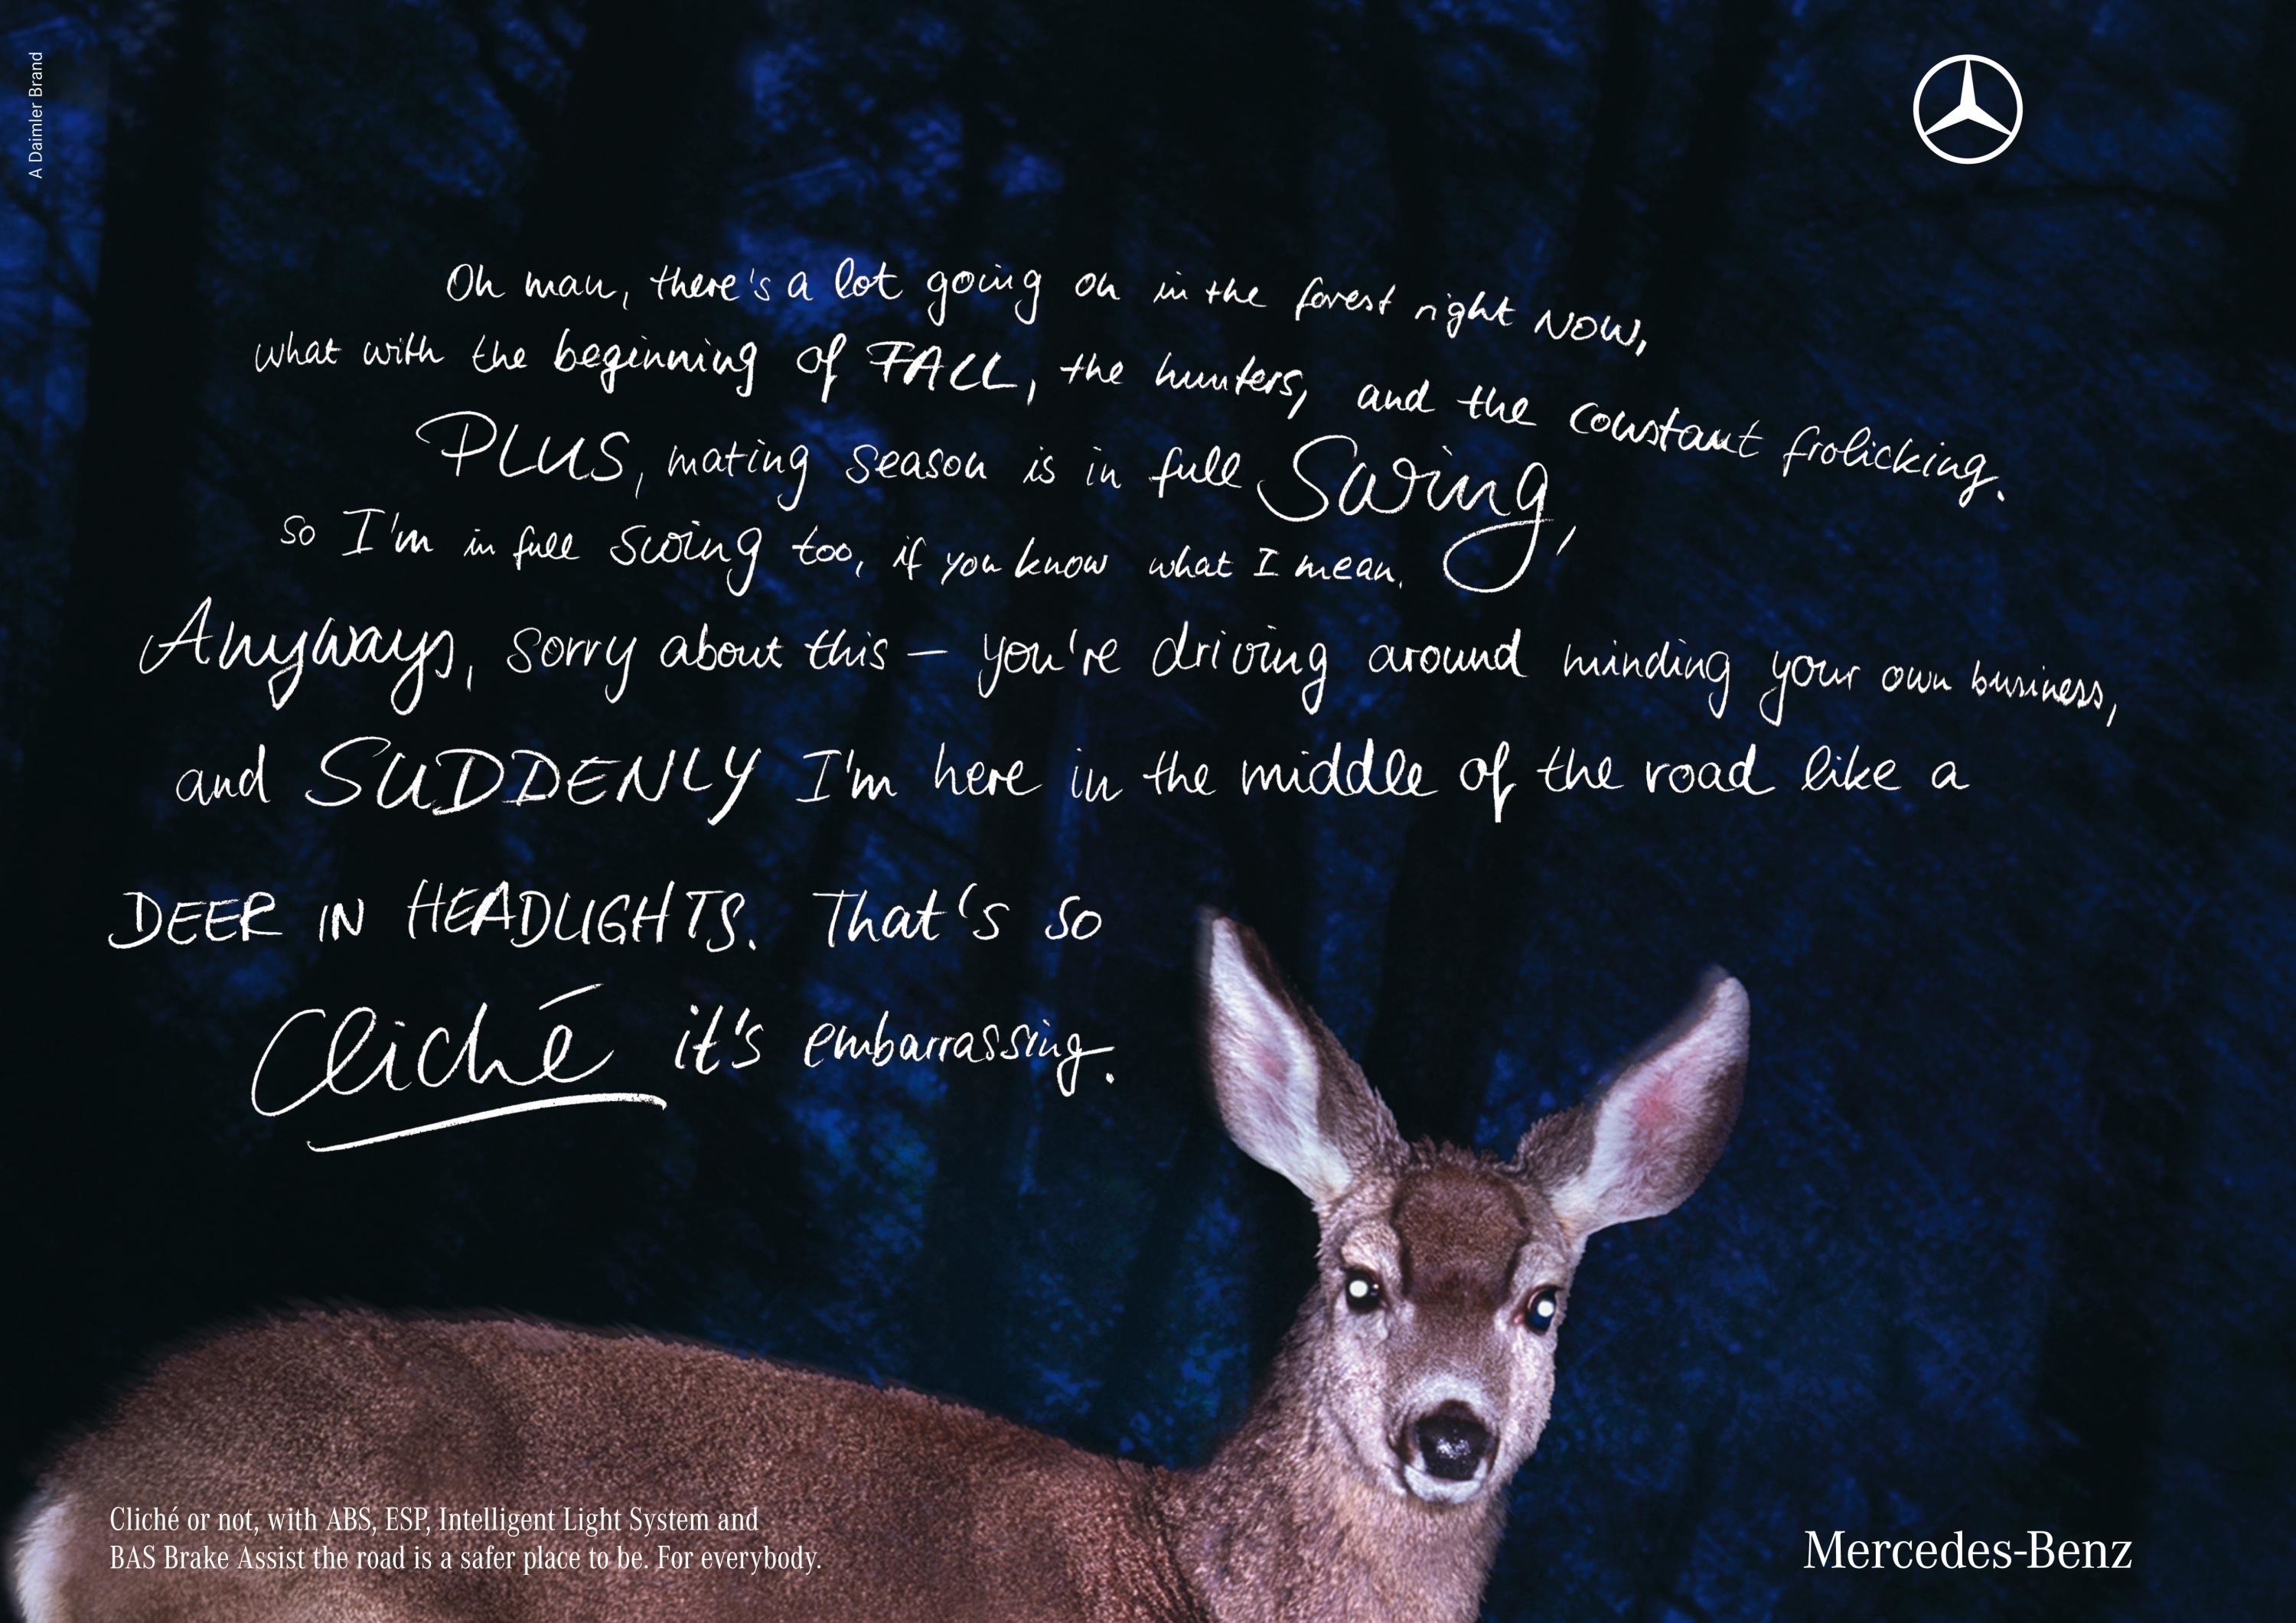 A Daimler Brand
Oh man, there's a lot going on in the forest right NOW,
what with the beginning of FALL, the hunters, and the constant frolicking.
PLUS, mating season is in full Swing,
so I'm in full swing too, if you know what I mean.
Anyways, sorry about this – you're driving around minding your own business,
and SUDDENLY I'm here in the middle of the road like a
DEER IN HEADLIGHTS. That's so
Cliché it's embarrassing.
Cliché or not, with ABS, ESP, Intelligent Light System and
BAS Brake Assist the road is a safer place to be. For everybody.
Mercedes-Benz